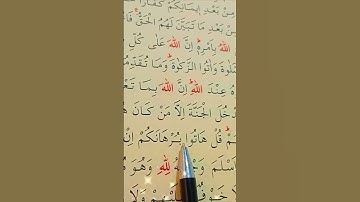 مِّنْ بَعْدِ اِيْمَانِكُمْ كُفَّارًا
مِّنْ بَعْدِ مَا تَبَيَّنَ لَهُمُ الْحَقُّ
اللّٰهُ بِاَمْرِهٖ اِنَّ اللّٰهَ عَلٰى كُلِّ
وَاٰتُوا الزَّكٰوةَ وَمَا تُقَدِّمُوْا
عِنْدَ اللّٰهِ اِنَّ اللّٰهَ بِمَا
الْجَنَّةَ اِلَّا مَنْ كَانَ
قُلْ هَاتُوْا بُرْهَانَكُمْ اِنْ
اَسْلَمَ لِلّٰهِ وَهُوَ
وَلَا